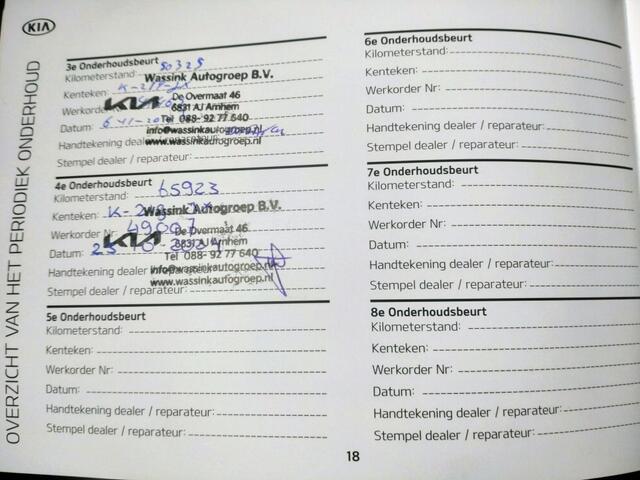 KIA
OVERZICHT VAN HET PERIODIEK ONDERHOUD
3e Onderhoudsbeurt
Kilometerstand: 50325
Wassink Autogroep B.V.
Kenteken:
De Overmaat 46
Werkorder
KIA
6831 AJ Arnhem
Datum:
Tel 088- 92 77 640
info@wassinkautogroep.nl
Handtekening dealer / reparateur:
www.wassinkautogroep.nl
Stempel dealer / reparateur:
4e Onderhoudsbeurt
Kilometerstand: 65923
Wassink Autogroep B.V.
Kenteken:
De Overmaat 46
Werkorder Nr: 49007
KIA
6831 AJ Arnhem
Datum:
Tel 088- 92 77 640
Handtekening dealer / reparateur:
info@wassinkautogroep.nl
www.wassinkautogroep.nl
Stempel dealer / reparateur:
5e Onderhoudsbeurt
Kilometerstand:
Kenteken:
Werkorder Nr:
Datum:
Handtekening dealer / reparateur:
Stempel dealer / reparateur:
6e Onderhoudsbeurt
Kilometerstand:
Kenteken:
Werkorder Nr:
Datum:
Handtekening dealer / reparateur:
Stempel dealer / reparateur:
7e Onderhoudsbeurt
Kilometerstand:
Kenteken:
Werkorder Nr:
Datum:
Handtekening dealer / reparateur:
Stempel dealer / reparateur:
8e Onderhoudsbeurt
Kilometerstand:
Kenteken:
Werkorder Nr:
Datum:
Handtekening dealer / reparateur:
Stempel dealer / reparateur:
18